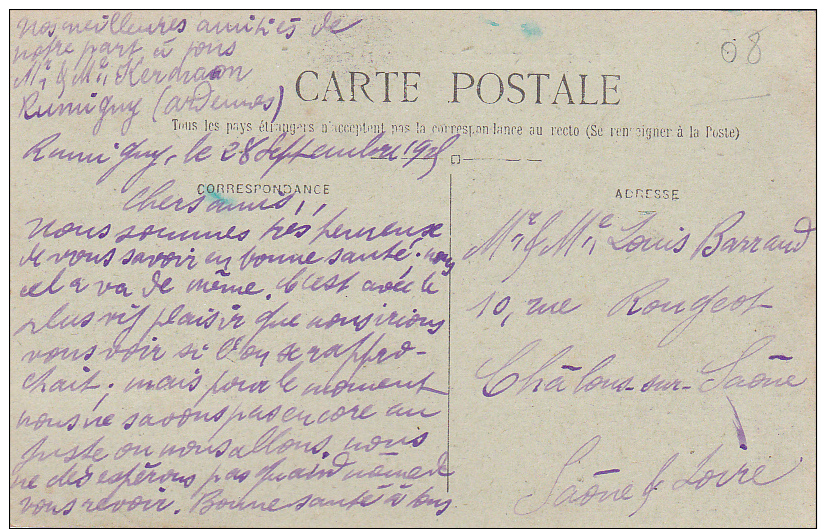 Nos meilleures amitiés de
notre part à tous
Mr & Me Kermaon
Rumigny (Ardennes)
08
CARTE POSTALE
Tous les pays étrangers n'acceptent pas la correspondance au recto (Se renseigner à la Poste)
Rumigny, le 28 Septembre 19
CORRESPONDANCE
Chers amis,
Nous sommes très heureux
de vous savoir en bonne santé ; nous
cela va de même. C'est avec le
plus vif plaisir que nous irions
vous voir si l'on se rappro-
chait ; mais pour le moment
nous ne savons pas encore au
juste où nous allons. nous
ne desespérons pas quand même de
vous revoir. Bonne santé à tous
ADRESSE
Mr & Me Louis Barraud
10, rue Rougeot
Châlons-sur-Saône
Saône & Loire